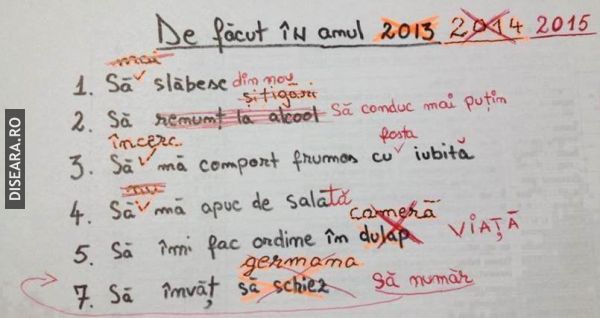 De făcut în anul 2013 2014 2015
mai
1. Să slăbesc din nou
și țigări
2. Să renunț la alcool Să conduc mai puțin
încerc
fosta
3. Să mă comport frumos cu iubită
4. Să mă apuc de salată
cameră
5. Să îmi fac ordine în dulap VIAȚĂ
germana
7. Să învăț să schiez Să număr
DISEARA.RO